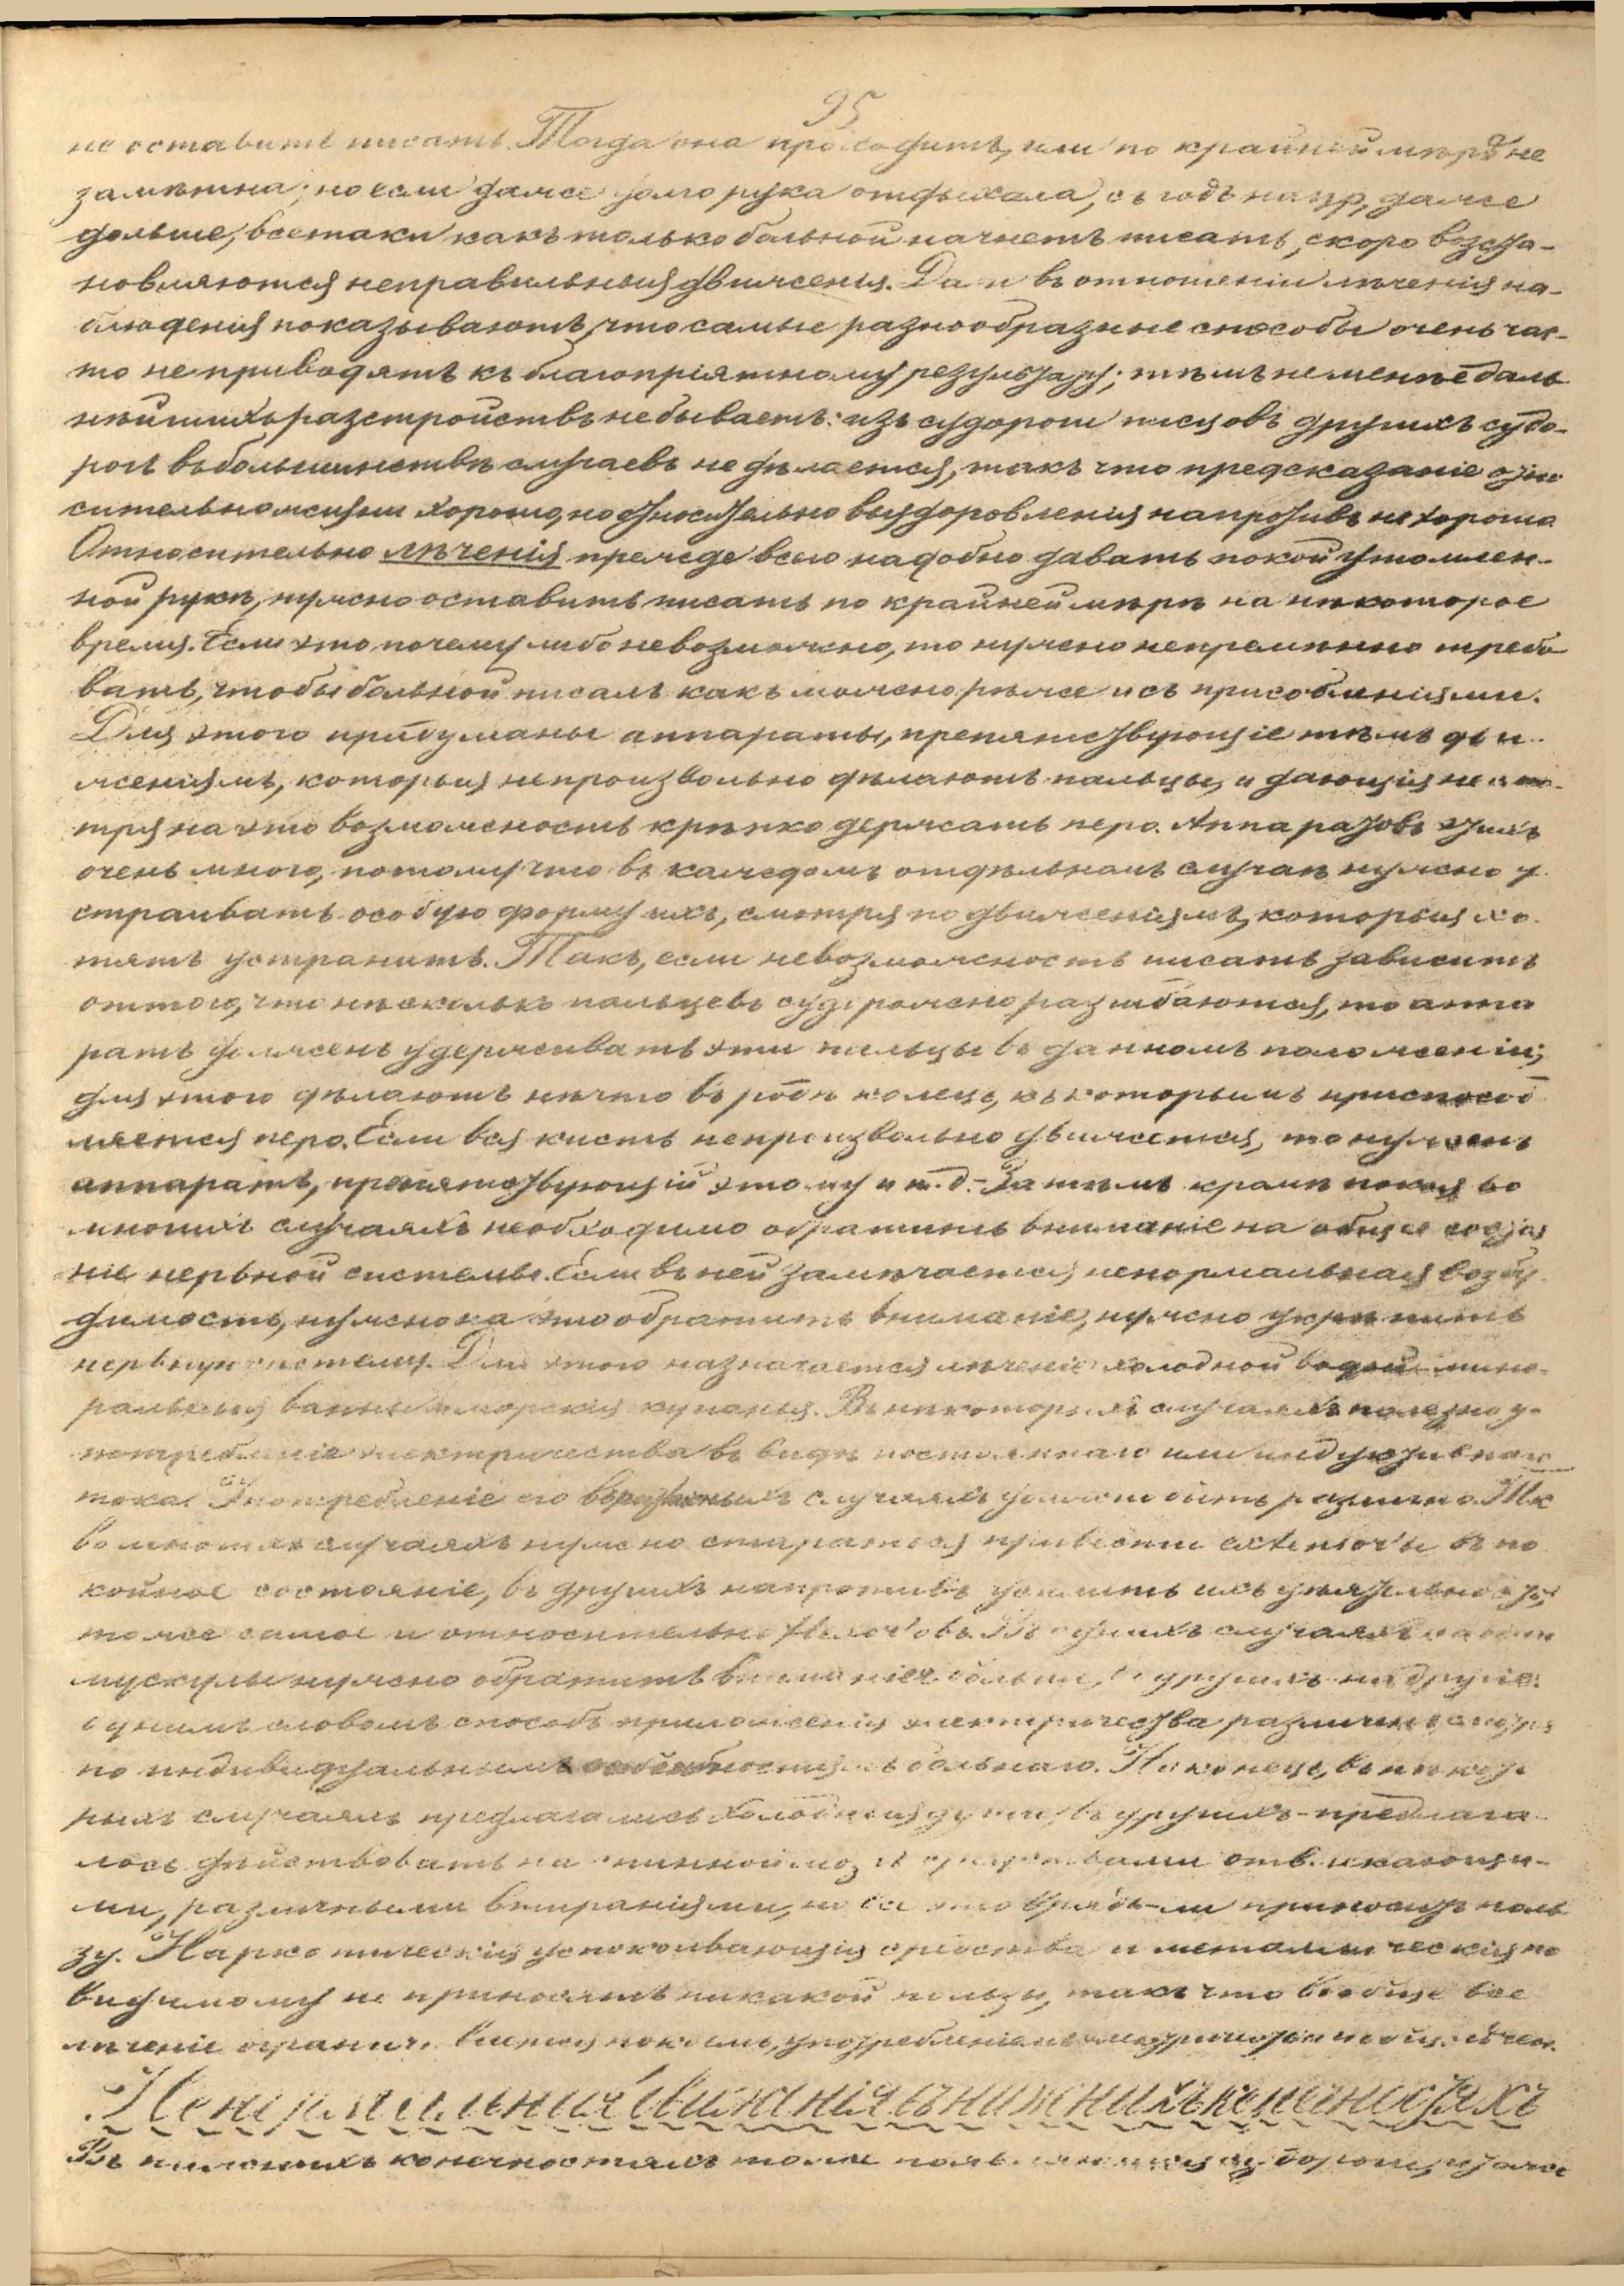 95
не оставитъ писать. Тогда она проходитъ, или по крайней мѣрѣ не
замѣтна; но если даже долго рука отдыхала, съ годъ напр, даже
дольше, всетаки какъ только больной начнетъ писать, скоро возста-
новляются неправильныя движенія. Да и въ отношеніи лѣченія на-
блюденія показываютъ, что самые разнообразные способы очень час-
то не приводятъ къ благопріятному результату; тѣмъ не менѣе даль
нѣйшихъ разстройствъ не бываетъ: изъ судороги писцовъ другихъ судо-
рогъ въ большинствѣ случаевъ не дѣлается, такъ что предсказаніе отно
сительно жизни хорошо, но относительно выздоровленія напротивъ не хорошо
Относительно лѣченія прежде всего надобно давать покой утомлен-
ной рукѣ, нужно оставить писать по крайней мѣрѣ на нѣкоторое
время. Если это почему либо невозможно, то нужно непремѣнно требо
вать, чтобы больной писалъ какъ можно рѣже и съ присобленіями.
Для этого придуманы аппараты, препятствующіе тѣмъ дви-
женіямъ, которыя непроизвольно дѣлаютъ пальцы, и дающія не смо-
тря на это возможность крѣпко держать перо. Аппаратовъ этихъ
очень много, потому что въ каждомъ отдѣльномъ случаѣ нужно у
страивать особую форму ихъ, смотря по движеніямъ, которыя хо-
тятъ устранить. Такъ, если невозможность писать зависитъ
оттого, что нѣсколько пальцевъ судорожно разгибаются, то аппа
ратъ долженъ удерживать эти пальцы въ данномъ положеніи;
для этого дѣлаютъ нѣчто въ родѣ колецъ, къ которымъ приспособ
ляется перо. Если вся кисть непроизвольно движется, то нуженъ
аппаратъ, препятствующій этому и т.д. - Затѣмъ кромѣ покоя во
многихъ случаяхъ необходимо обратить вниманіе на общее состоя
ніе нервной системы. Если въ ней замѣчается ненормальная возбу
димость, нужно на это обратить вниманіе, нужно укрѣпить
нервную систему. Для этого назначается лѣченіе холодной водой мине-
ральныя ванны и морскія купанья. Въ нѣкоторыхъ случаяхъ полезно у-
потребленіе электричества въ видѣ постояннаго или индуктивнаго
тока. Употребленіе его въ разныхъ случаяхъ должно быть различно. Такъ
во многихъ случаяхъ нужно стараться привести extensor'ы въ по
койное состояніе, въ другихъ напротивъ усилить ихъ дѣятельность;
тоже самое и относительно flexor'овъ. Въ однихъ случаяхъ на одни
мускулы нужно обратить вниманіе больше, въ другихъ на другіе:
однимъ словомъ способъ приложенія электричества различенъ смотря
по индивидуальнымъ особенностямъ больнаго. Наконецъ, въ нѣкото
рыхъ случаяхъ предлагались холодныя души, въ другихъ - предлага
лось дѣйствовать на спинной мозгъ средствами отвлекающи-
ми, различными втираніями, но все это врядъ-ли приноситъ поль
зу. Наркотическія успокоивающія средства и металлическія по
видимому не приносятъ никакой пользы, такъ что вообще все
лѣченіе огранич. покоемъ, употребленіемъ электричества
Ненормальныя движенія въ нижнихъ конечностяхъ
Въ нижнихъ конечностяхъ тоже судороги, и